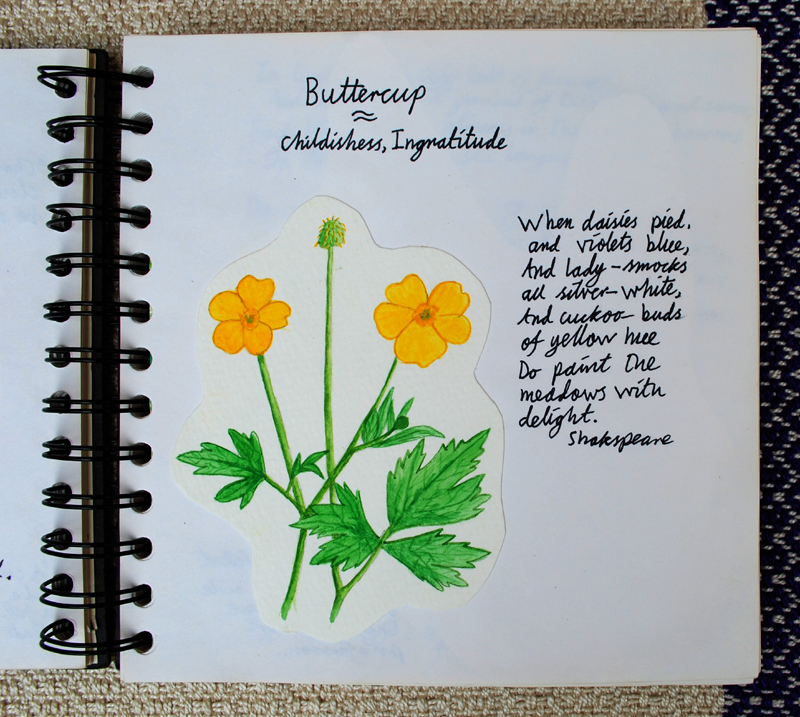 Buttercup
≈
childishess, Ingratitude
When daisies pied,
and violets blue,
And lady-smocks
all silver-white,
And cuckoo-buds
of yellow hue
Do paint the
meadows with
delight.
Shakspeare